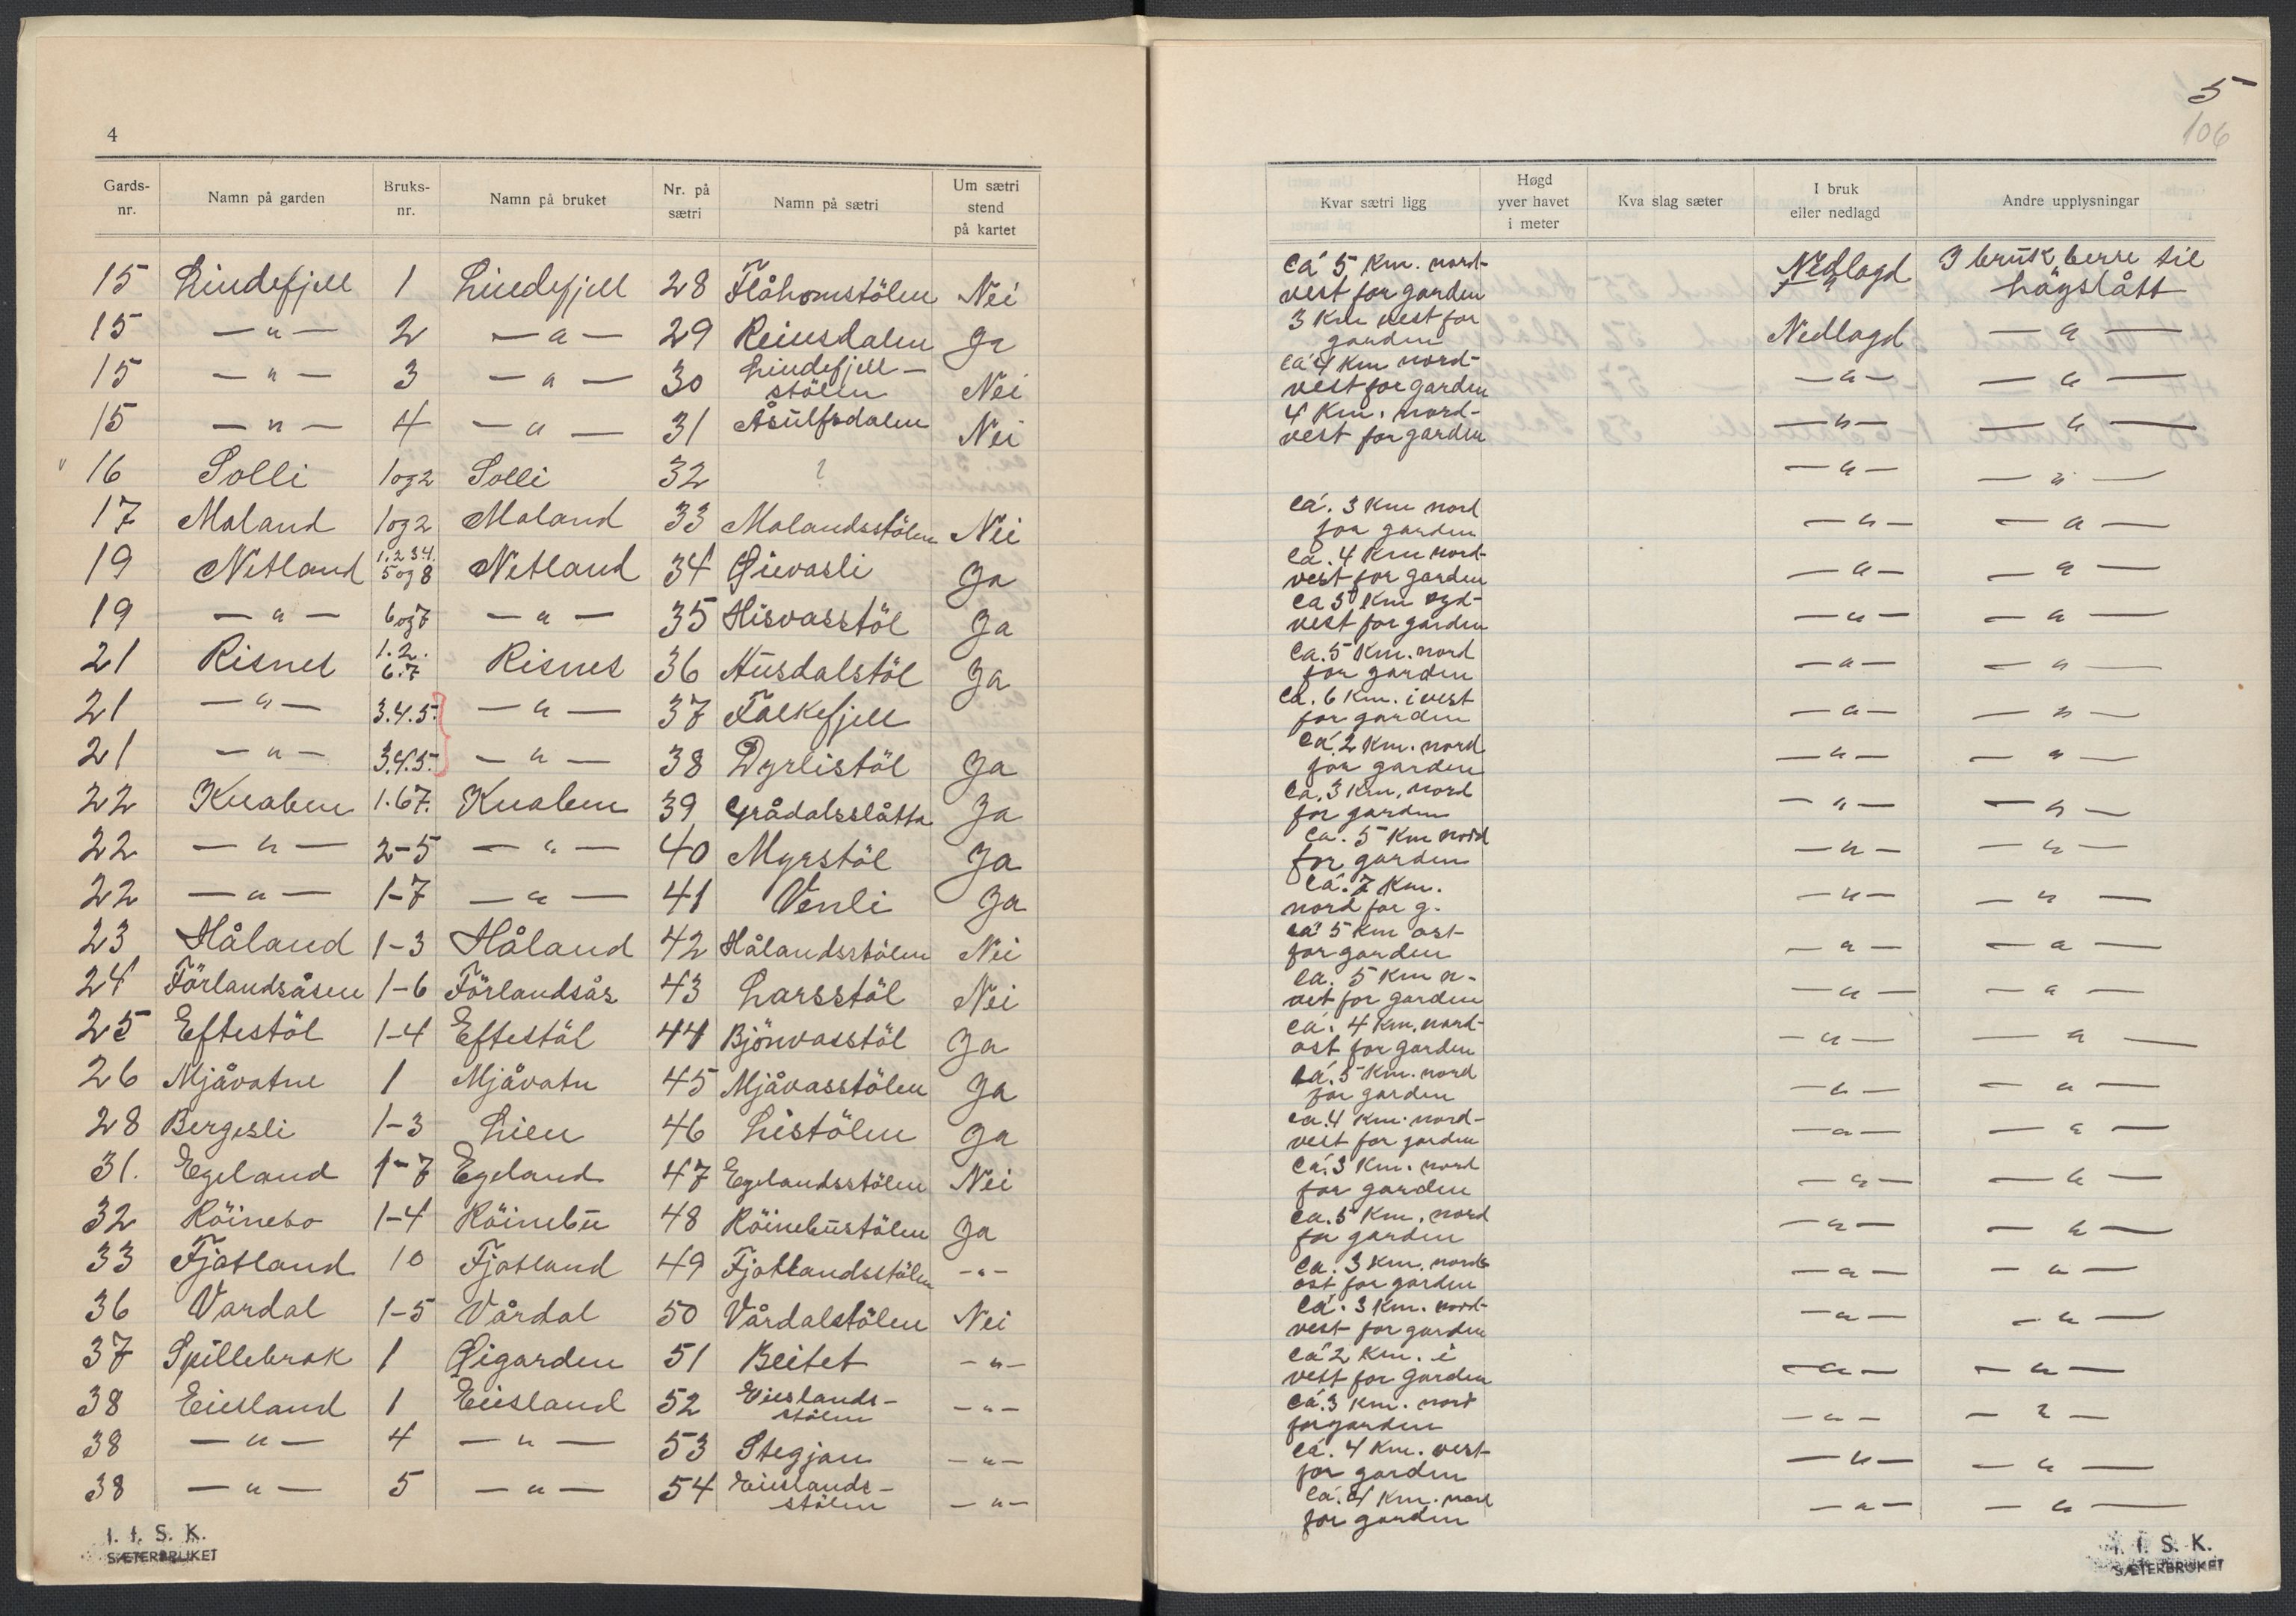 4
Gards-nr. Namn på garden Bruks-nr. Namn på bruket Nr. på sætri Namn på sætri Um sætri stend på kartet
15 Lindefjell 1 Lindefjell 28 Flåhomstölen Nei
15 — " — 2 — " — 29 Reinsdalen Ja
15 — " — 3 — " — 30 Lindefjell-stölen Nei
15 — " — 4 — " — 31 Åsulfsdalen Nei
16 Solli 1 og 2 Solli 32 ?
17 Moland 1 og 2 Moland 33 Molandsstölen Nei
19 Netland 1.2 3 4. 5 og 8 Netland 34 Øievasli Ja
19 — " — 6 og 7 — " — 35 Hisvasstöl Ja
21 Risnes 1.2. 6.7 Risnes 36 Husdalstöl Ja
21 — " — 3.4.5. — " — 37 Falkefjell
21 — " — 3.4.5. — " — 38 Dyrlistöl Ja
22 Knaben 1.67. Knaben 39 Grådalsslåtta Ja
22 — " — 2-5 — " — 40 Myrstöl Ja
22 — " — 1-7 — " — 41 Venli Ja
23 Håland 1-3 Håland 42 Hålandsstölen Nei
24 Förlandsåsen 1-6 Förlandsås 43 Larsstöl Nei
25 Eftestöl 1-4 Eftestöl 44 Bjönvasstöl Ja
26 Mjåvatne 1 Mjåvatn 45 Mjåvasstölen Ja
28 Bergesli 1-3 Lien 46 Listölen Ja
31. Egeland 1-7 Egeland 47 Egelandsstölen Nei
32 Röinebo 1-4 Röinebu 48 Röinebustölen Ja
33 Fjotland 10 Fjotland 49 Fjotlandsstölen - " -
36 Vardal 1-5 Vårdal 50 Vårdalstölen Nei
37 Spillebrok 1 Øigarden 51 Beitet - " -
38 Eiesland 1 Eiesland 52 Eieslands-stölen - " -
38 — " — 4 — " — 53 Stegjan - " -
38 — " — 5 — " — 54 Eieslands-stölen - " -
I. I. S. K.
SÆTERBRUKET
5
106
Kvar sætri ligg Høgd yver havet i meter Kva slag sæter I bruk eller nedlagd Andre upplysningar
Ca 5 Km. nord-vest for garden Nedlagd I bruk berre til höyslått
3 Km vest for garden Nedlagd — " —
ca 4 Km nord-vest for garden — " — — " —
4 Km. nord-vest for garden — " — — " —
— " — — " —
ca. 3 Km nord for garden — " — — " —
Ca. 4 Km nord-vest for garden — " — — " —
Ca 5 Km syd-vest for garden — " — — " —
Ca. 5 Km. nord for garden — " — — " —
Ca. 6 Km. i vest for garden — " — — " —
Ca. 2 Km. nord for garden — " — — " —
Ca. 3 Km. nord for garden — " — — " —
ca. 5 Km nord for garden — " — — " —
Ca. 7 Km. nord for g. — " — — " —
ca 5 Km ost for garden — " — — " —
Ca. 5 Km n-vet for garden — " — — " —
ca. 4 Km. nord-ost for garden — " — — " —
ca. 5 Km. nord for garden — " — — " —
ca. 4 Km. nord-vest for garden — " — — " —
Ca. 3 Km. nord for garden — " — — " —
Ca. 5 Km. nord for garden — " — — " —
Ca. 3 Km. nord ost for garden — " — — " —
Ca. 3 Km. nord-vest for garden — " — — " —
Ca 2 Km. i vest for garden — " — — " —
Ca. 3 Km. nord for garden — " — — " —
ca. 4 Km. vest for garden — " — — " —
Ca. 4 Km. nord for garden — " — — " —
I. I. S. K.
SÆTERBRUKET